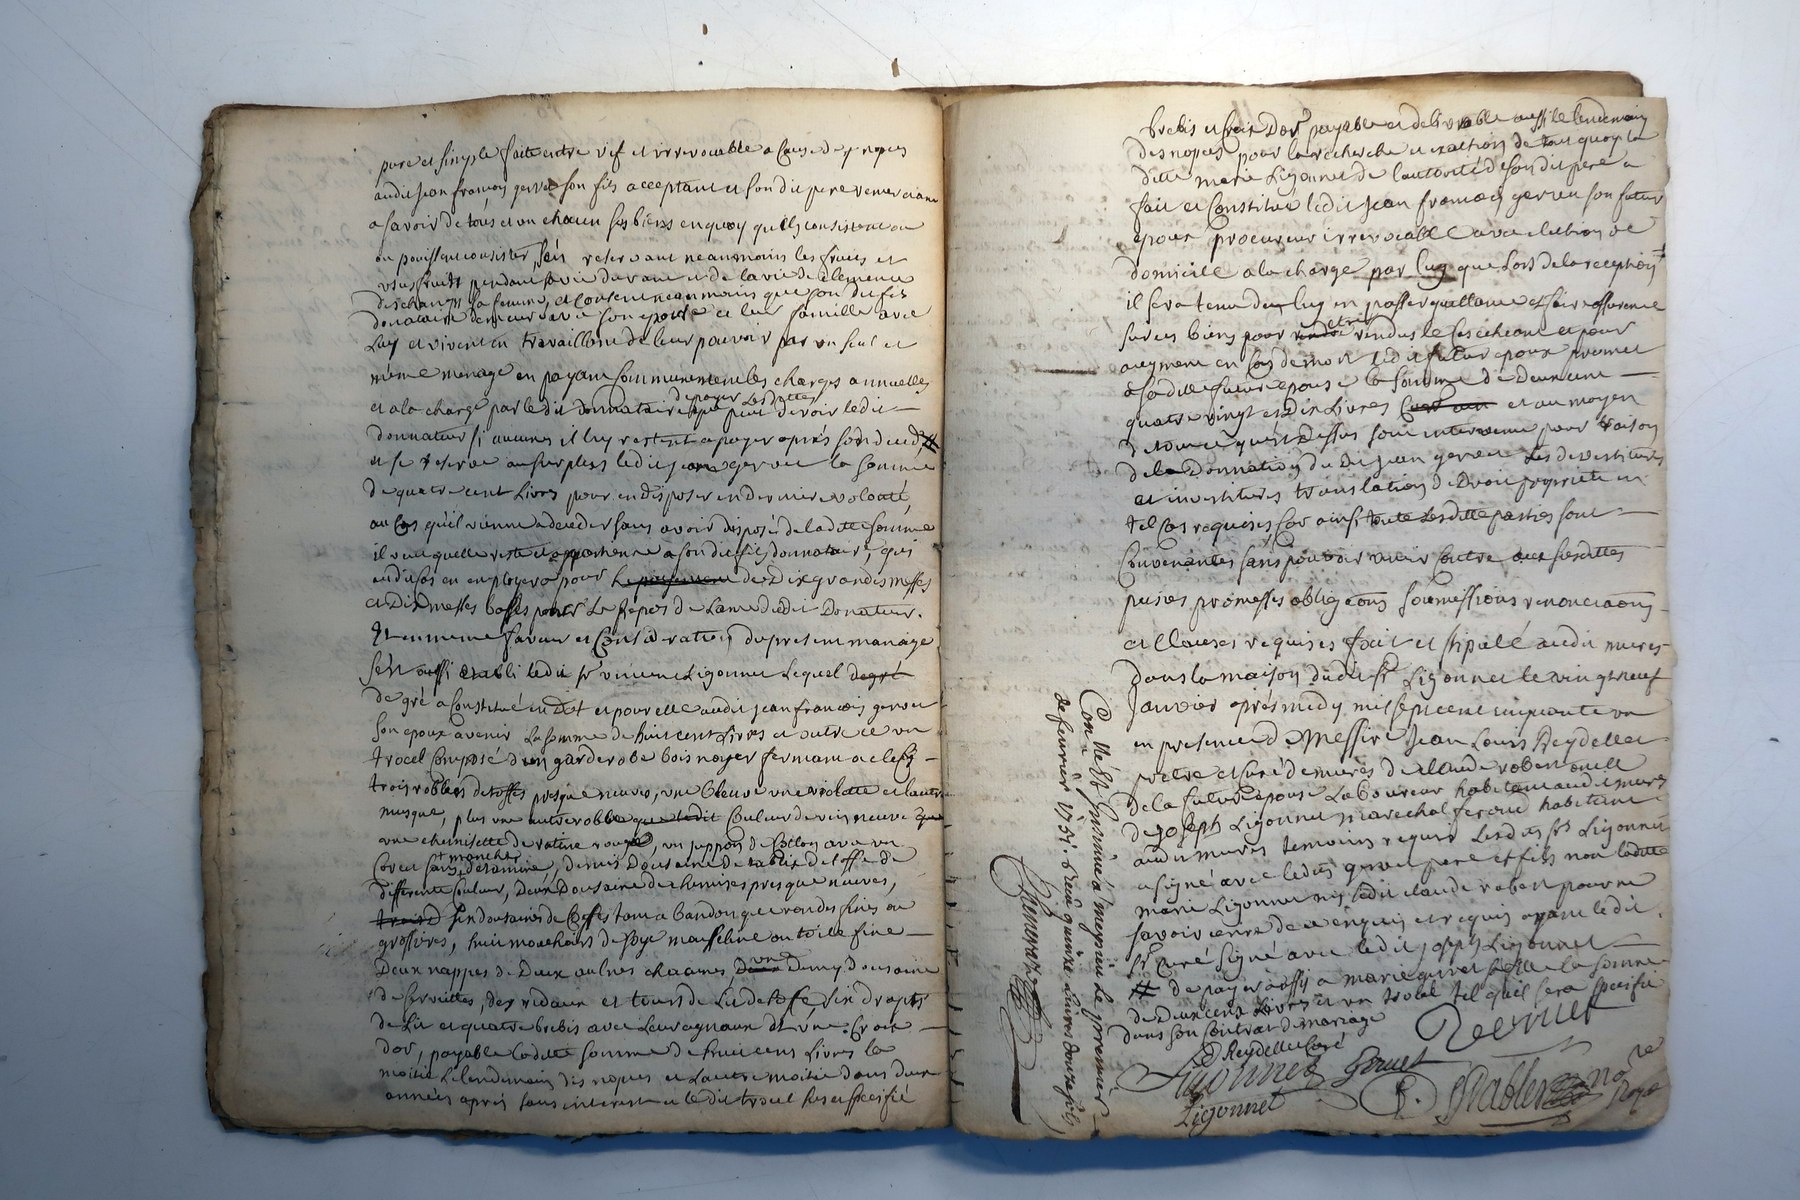 pure et simple faite entre vif et irrevocable a Cause de nopces
audit jean francois gervet son fils acceptant et son dit pere remerciant
a savoir de tous et un chacun ses biens en quoy qu'ils consistent ou
ou puissent consister, s'en reservant neanmoins les fruits et
usufruits pendant sa vie durant et de la vie de Clemence
deschamps sa femme, et consent neanmoins que son dit fils
donataire demeure avec son epouse et leur famille avec
Luy et vivent en travaillant de leur pouvoir par un seul et
même menage en payant Communement les charges annuelles
et a la charge par le dit donnataire de payer Les dettes que peut devoir le dit
donnateur si aucunes il luy restent a payer aprés son deced, #
et se reserve au surplus le dit jean gervet la somme
de quatre cent Livres pour en disposer en derniere volonté
au Cas qu'il vienne a deceder sans avoir disposé de la ditte somme
il veut quelle reste et appartienne a son dit fils donnataire qui
audit cas en employera pour le payement de Dix grandes messes
et Dix messes basses pour Le Repos de Lame dudit Donateur.
Et en meme faveur et Consideration du present mariage
s'est aussi etabli le dit sr vincent Ligonnet Lequel de gré
de gré a Constitué en Dot et pour elle audit jean francois gervet
son epoux avenir La somme de huit cent Livres et outre ce un
trocel Composé d'un garderobe bois noyer fermant a clef
trois robbes d'etoffes presque neuves, une bleuve une violette et lautre
musque, plus une autre robbe que ledit Couleur de vin neuve
une chemisette de ratine rouge, un juppon de Cotton avec un
Corcet sans manches d'etamine, demis Dousaine de tablier d'etoffe de
differente Couleur, Deux Dousaine de chemises presque neuves,
six dousaines de Coeffes tant a bandon que rondes fines ou
grossieres, huit mouchoirs de soye mousseline ou toile fine
Deux nappes de Deux aulnes chacunes, une Demy dousaine
de serviettes, des ridaux et tours de Lit d'etoffe, six draps
de Lit et quatre brebis avec Leurs agneaux et une Croix
dor, payable la ditte somme de huit cens Livres la
moitie Le lendemain des nopces et Lautre moitie dans deux
années aprés sans interest et le dit trocel sus specifié
brebis et croix Dor payable et delivrable aussi le lendemain
des nopces pour la recherche et exaction de tout quoy la
ditte marie Ligonnet de l'autorité de son dit pere a
fait et Constitué le dit jean francois gervet son futur
epoux procureur irrevocable avec election de
domicile a la charge par luy que Lors de la reception
il sera tenu de luy en passer quittance et faire assurence
sur ses biens pour etre rendus le Cas echeant et pour
augment en Cas de mort le dit futur epoux promet
a sa ditte future epouse la somme de Deux cent
quatre vingt et Dix Livres et au moyen
de tout ce que Dessus sont intervenue pour raison
de la Donnation du Dit jean gervet Les devestitures
et investitures translation de Droit proprieté en
tel Cas requises Car ainsi toute Lesditte parties sont
Convenantes sans pouvoir venir Contre aux susdittes
peines promesses obligaons soumissions renonciaons
et Clauses requises fait et stipulé audit mures
dans la maison dudit Sr Ligonnet le vingt neuf
Janvier aprés midy mil sept cent cinquante un
en presence de Messire jean Louis Reydellet
pretre et Curé de mures de claude robert oncle
de la future epouse Laboureur habitant audit mures
de joseph Ligonnet marechal ferand habitant
audit mures temoins requis Lesdits srs Ligonnet
a signé avec lesdits gervet pere et fils non laditte
marie Ligonnet ny ledit claude robert pour ne
savoir ecrire de ce enquis et requis ayant le dit
sr Curé signé avec le dit joseph Ligonnet
# de payer aussi a marie gervet sa fille la somme
de Deux cens Livres et un trocel tel qu'il sera specifié
dans son Contrat de mariage
Gervet
Reydellet Curé
Ligonnet Gervet
Ligonnet
Rable no re
Con llé & Insinué à meyzieu Le premier
de fevrier 1751. & Receu quinze Livres douze sols